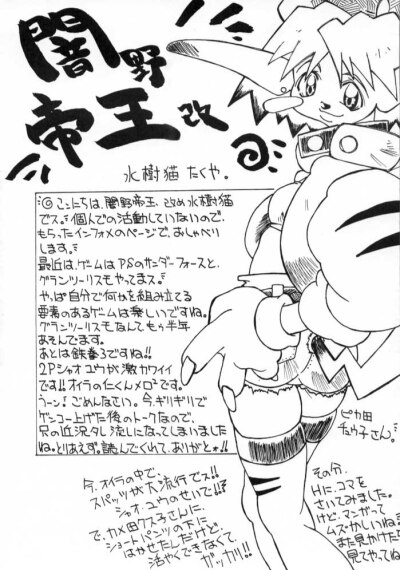 闇野
帝王 改
水樹猫 たくや。
◎こんにちは、闇野帝王 改め水樹猫
でス。個人での活動していないので、
もらったインフォメのページで、おしゃべり
します。
最近は、ゲームはPSのサンダーフォースと、
グランツーリスモやってまス。
やっぱ自分で何かを組み立てる
要素のあるゲームは楽しいですね。
グランツーリスモなんてもう半年
あそんでます。
あとは鉄拳3ですね!!
2Pシャオユウが激カワイイ
です!!オイラの仁くんメロメロです。
うーン!ごめんなさい。今、ギリギリで
ゲンコー上げた後のトークなので、
兄の近況タレ流しになってしまいました
ね。とりあえず。読んでくれて、ありがとオ!!
今、オイラの中で、
スパッツが大流行でス!!
シャオ・ユウのせいで!!
で、カメ田クス子さんに
ショートパンツの下に
はかせたんだけど、
活やくできなくて、
ガッカリ!!
ピカ田
チュウ子さん。
その分、
Hに、コマを
さいてみました。
けど、マンガって
ムズかしいねぇ!
また見かけたら
見てやってね